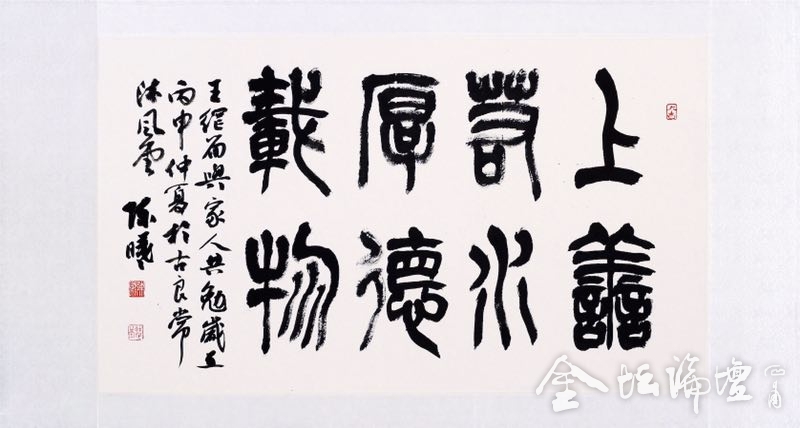 上善
若水
厚德
載物
與家人共勉歲在
丙申仲夏於古良常
沐風雲 陳曦
金坛論壇